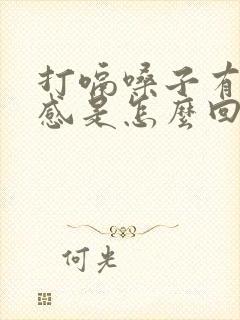 打嗝嗓子有
感是怎麼回
何光